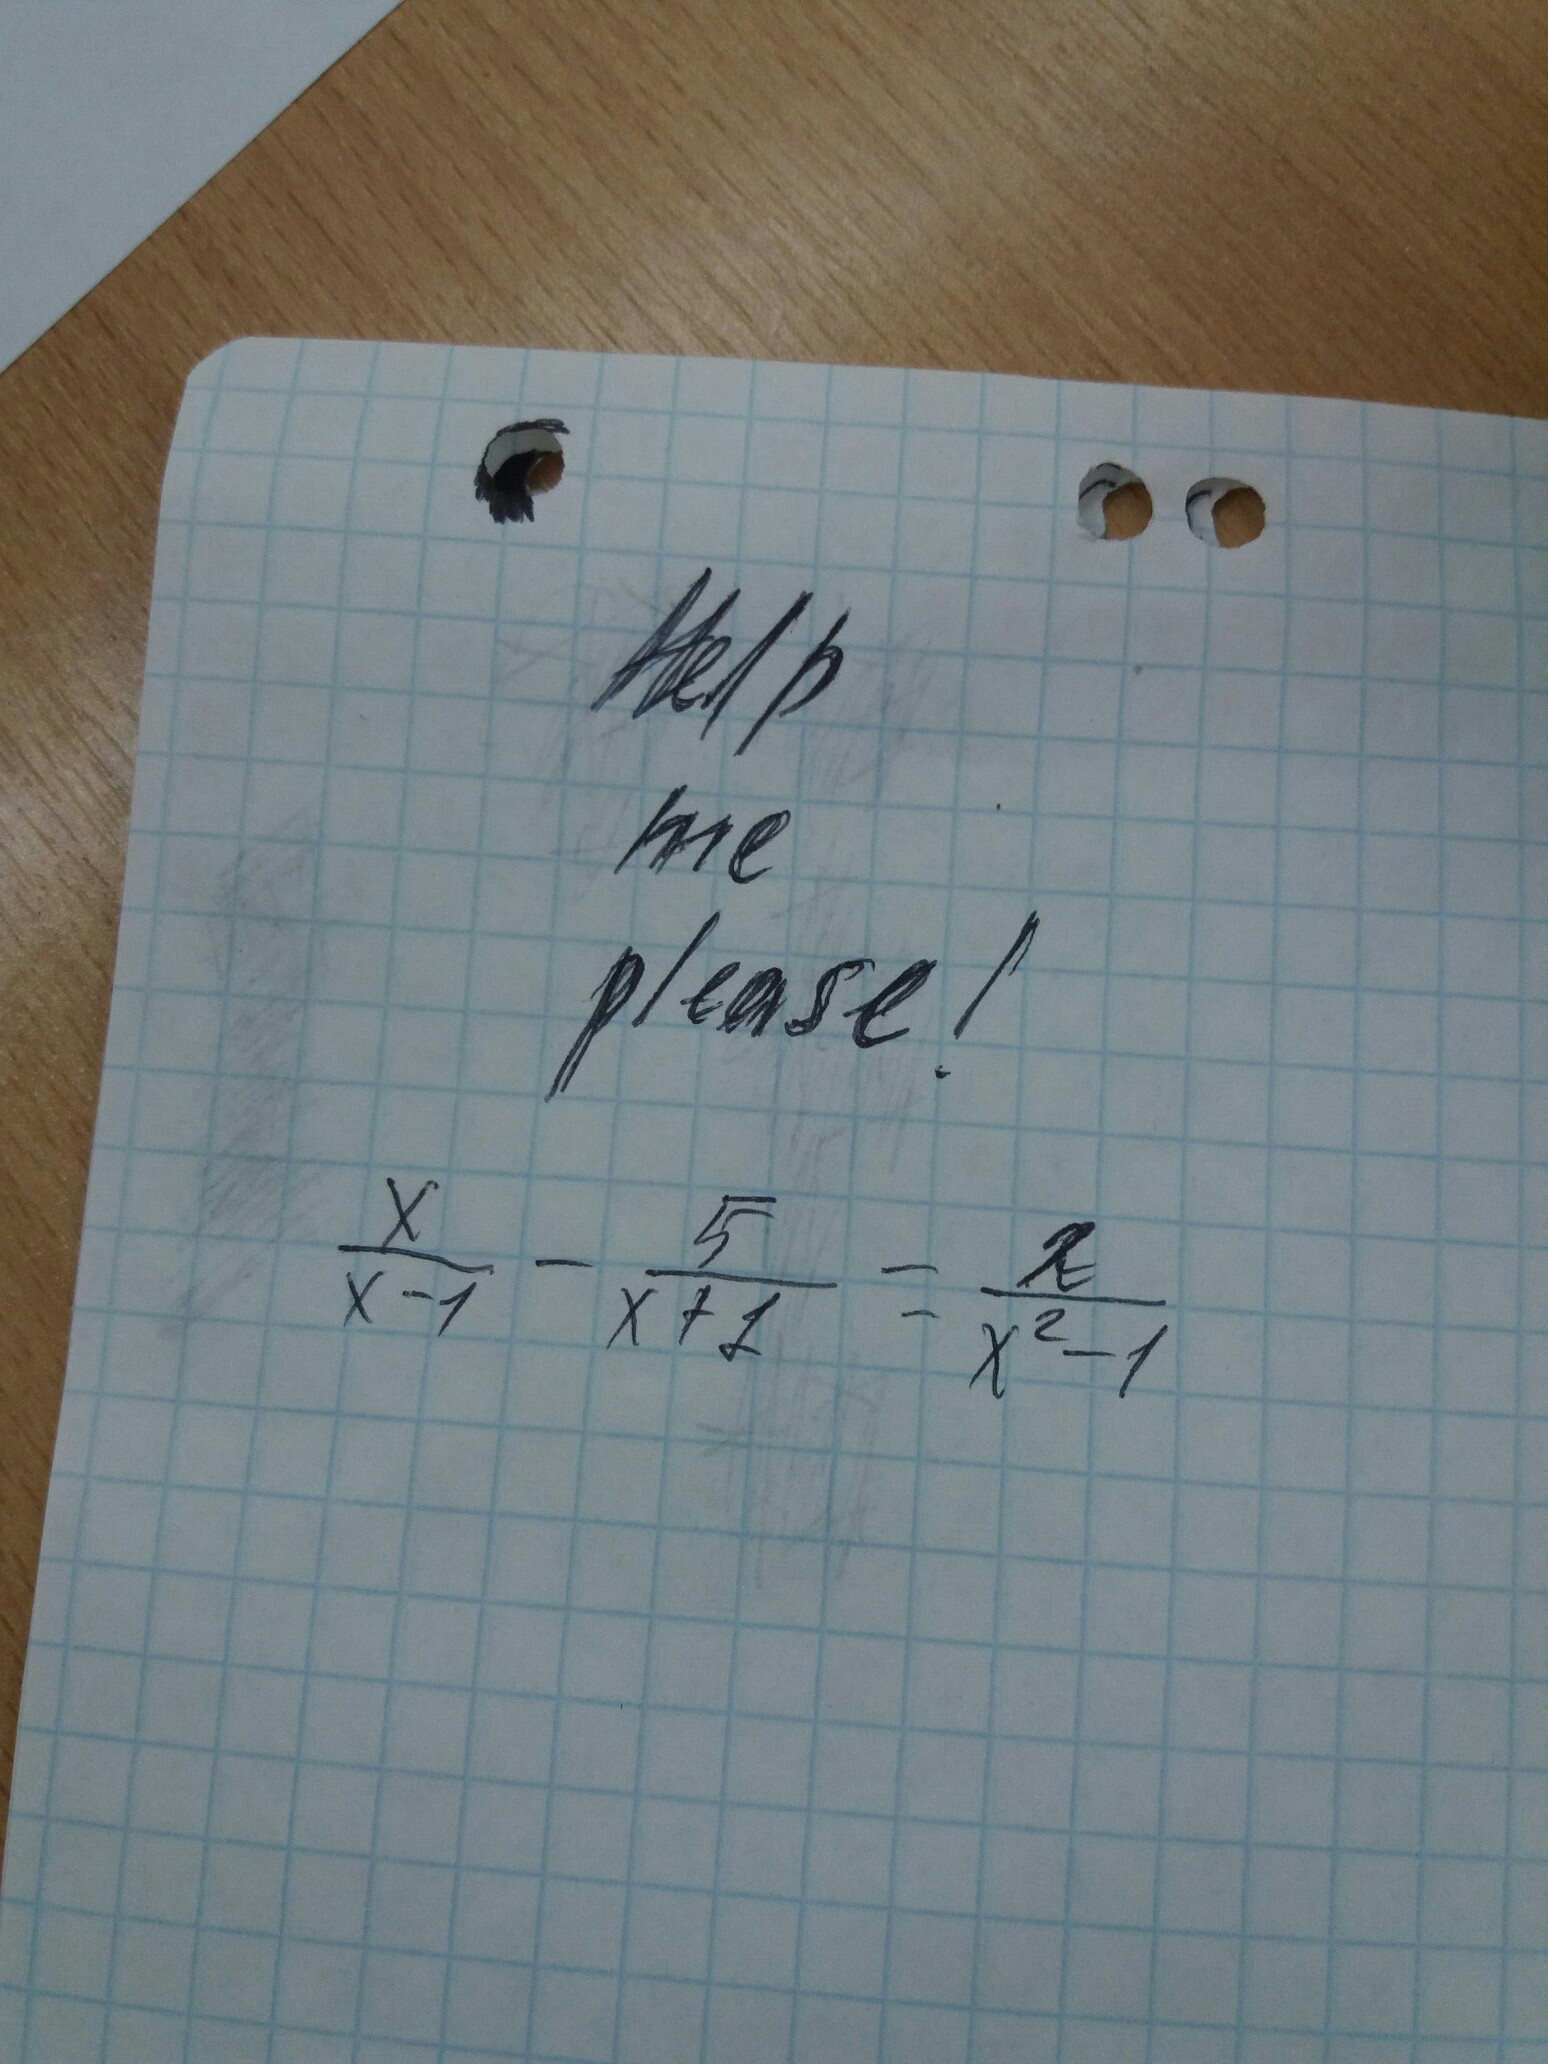 Help
me
please!
x/(x-1) - 5/(x+1) = 2/(x²-1)